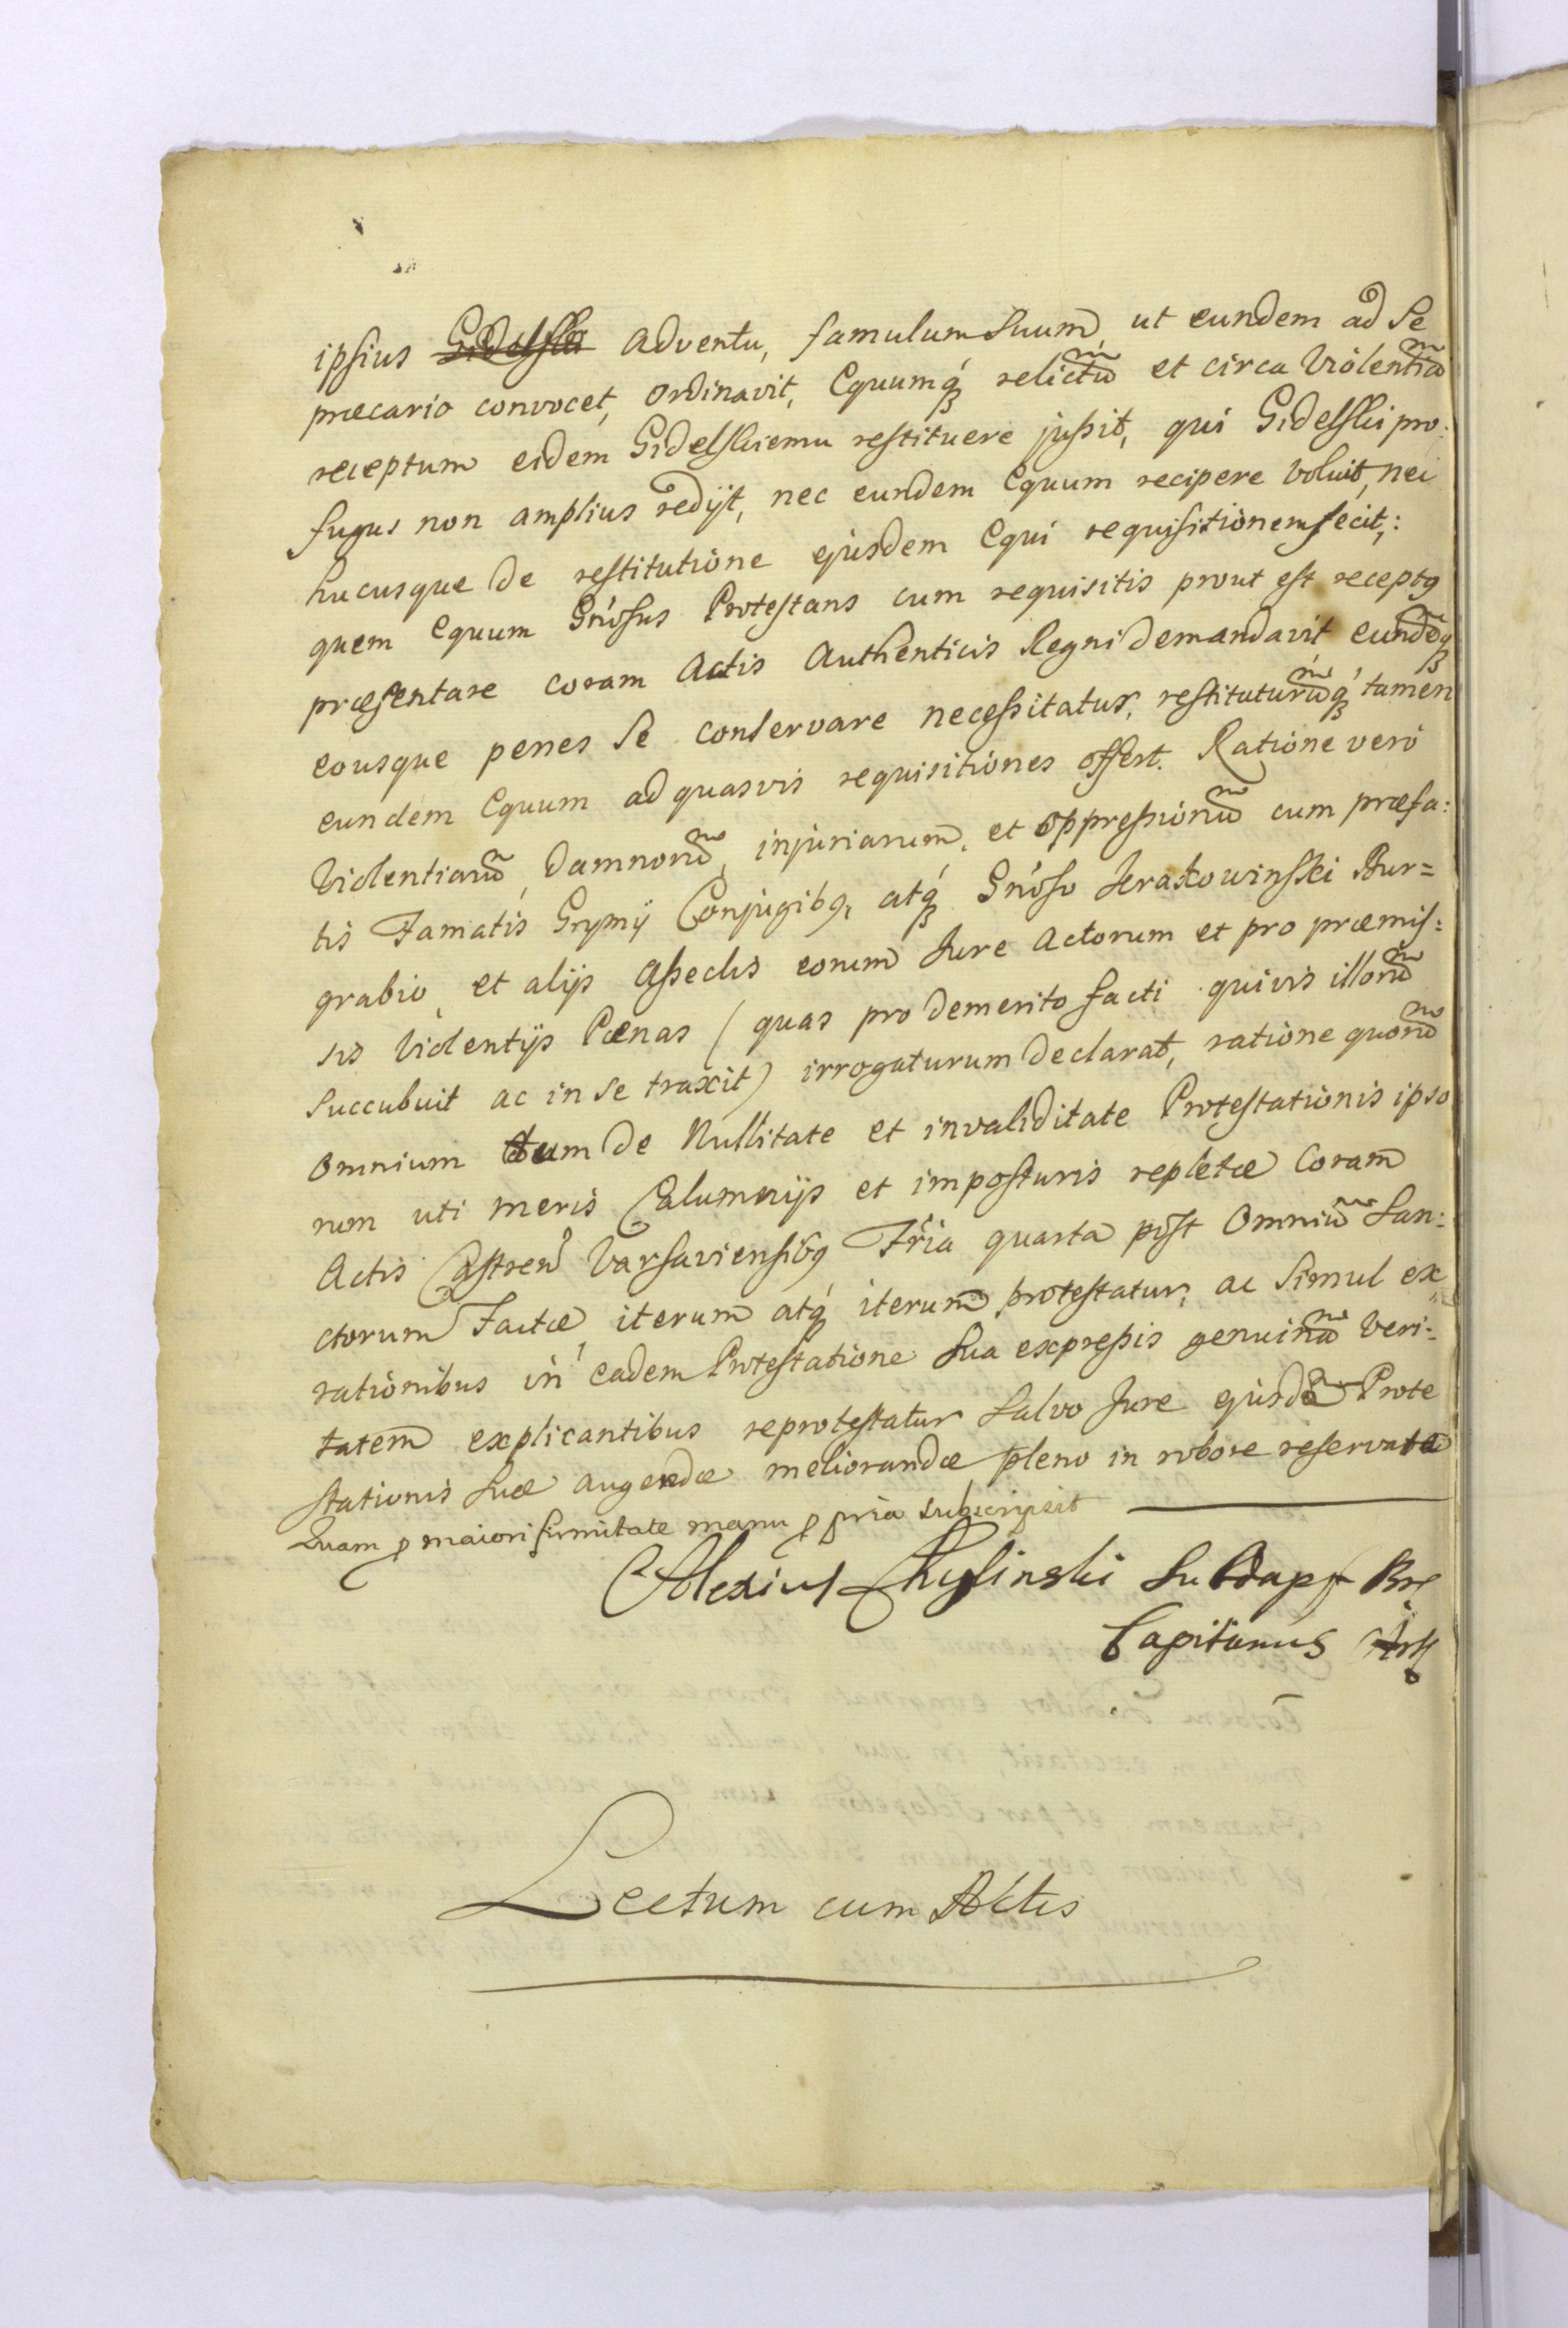 ipsius Gidelski adventu, famulum suum, ut eundem ad se
præcario convocet, ordinavit, Equumq́ꝫ relictũ et circa Violentiã
receptum eidem Gidelskiemu restituere jussit, qui Gidelski pro:
fugus non amplius redijt, nec eundem Equum recipere voluit, nei
hucusque de restitutione ejusdem Equi requisitionem fecit,:
quem Equum Gnósus Protestans cum requisitis prout est receptꝰ
præsentare coram Actis Authenticis Regni demandavit eundẽqꝫ
eousque penes se conservare necessitatur, restituturũq́ꝫ tamen
eundem Equum ad quasvis requisitiones offert. Ratione verò
Violentiarũ, Damnorũ, injuriarum, et oppressionũ cum præfa:
tis Famatis Grymij Conjugibꝰ, atq́ꝫ Gnóso Kraskowinski Bur=
grabio, et alijs Asseclis eorum Jure Actorum et pro præmis:
sis Violentijs Pœnas (quas pro demerito facti quivis illorũ
succubuit ac in se traxit) irrogaturum declarat, ratione quorũ
omnium tum de Nullitate et invaliditate Protestationis ipso
rum uti meris Calumnijs et imposturis repletæ Coram
Actis Castren̄ Varsaviensibꝰ Fr̃ia quarta post Omniũ San:
ctorum Factæ, iterum atq́ꝫ iterum protestatur, ac simul ex
rationibus in eadem Protestatione sua expressis genuinã veri:
tatem explicantibus reprotestatur salvo Jure ejusdẽ Prote
stationis suæ augendæ meliorandæ pleno in robore reservato
Quam ꝓ maiori firmitate manu ꝓpria subscripsit
Alexius Chysinski SubDapf Br
Capitanus
Lectum cum Actis